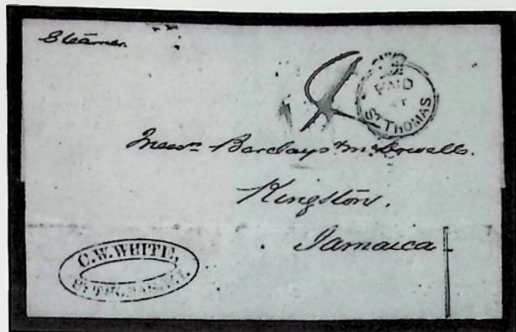 Steamer.
PAID
AT
ST THOMAS
Messrs Barclays & McDowells.
Kingston.
Jamaica
C.W. WHITE,